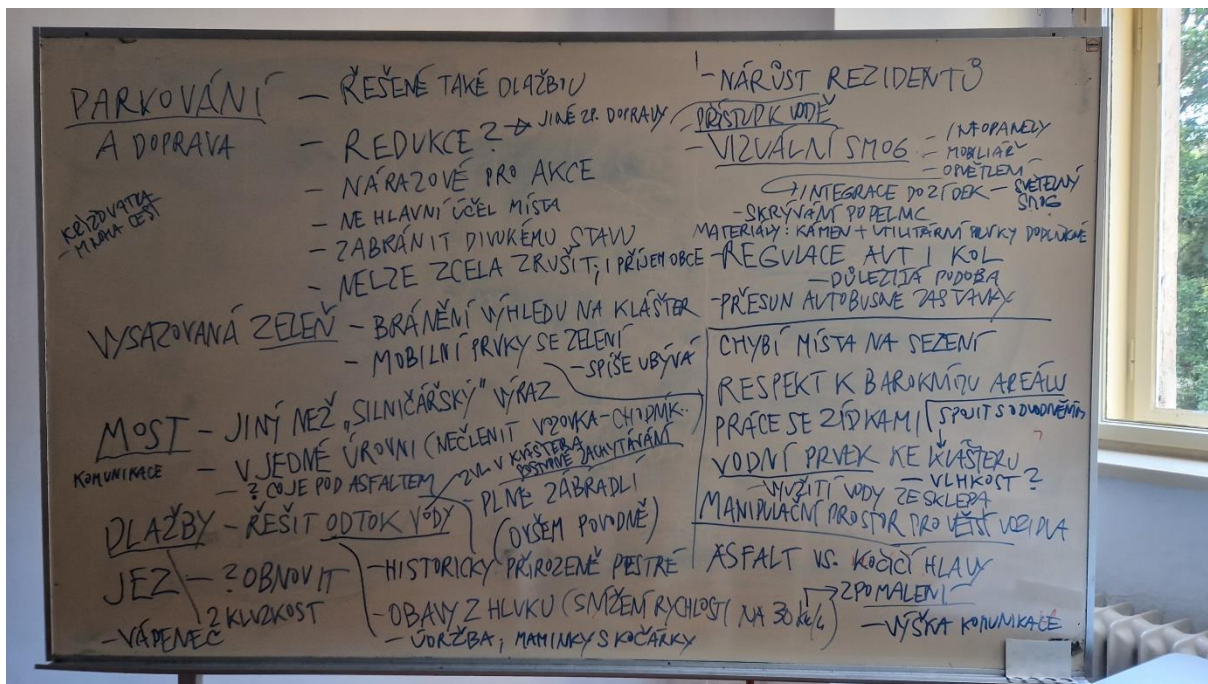 PARKOVÁNÍ
A DOPRAVA
KŘIŽOVATKA
MNOHA CEST
- ŘEŠENÉ TAKÉ DLAŽBOU
- REDUKCE? → JINÉ ZP. DOPRAVY
- NÁRAZOVÉ PRO AKCE
- NE HLAVNÍ ÚČEL MÍSTA
- ZABRÁNIT DIVOKÉMU STAVU
- NELZE ZCELA ZRUŠIT, I PŘÍJEM OBCE
VYSAZOVANÁ ZELEŇ - BRÁNĚNÍ VÝHLEDU NA KLÁŠTER
- MOBILNÍ PRVKY SE ZELENÍ
- SPÍŠE UBÝVÁ
MOST - JINÝ NEŽ „SILNIČÁŘSKÝ" VÝRAZ
KOMUNIKACE - V JEDNÉ ÚROVNI (NEČLENIT VOZOVKA-CHODNÍK..
- ? CO JE POD ASFALTEM
ZVL. V KLÁŠTERA
POSTUPNÉ ZACHYTÁVÁNÍ
- PLNÉ ZÁBRADLÍ
(OVŠEM POVODNĚ)
DLAŽBY - ŘEŠIT ODTOK VODY
- HISTORICKY PŘIROZENĚ PESTRÉ
- OBAVY Z HLUKU (SNÍŽENÍ RYCHLOSTI NA 30 km/h)
- ÚDRŽBA, MAMINKY S KOČÁRKY
? KLUZKOST
JEZ - ? OBNOVIT
- VÁPENEC
- NÁRŮST REZIDENTŮ
PŘÍSTUP K VODĚ
- VIZUÁLNÍ SMOG - INFOPANELY
- MOBILIÁŘ
- OSVĚTLENÍ
INTEGRACE DO ZÍDEK - SVĚTELNÝ
SMOG
- SKRÝVÁNÍ POPELNIC
MATERIÁLY: KÁMEN + UTILITÁRNÍ PRVKY DOPLŇKOVÉ
- REGULACE AUT I KOL
- DŮLEŽITÁ PODOBA
- PŘESUN AUTOBUSNÉ ZASTÁVKY
CHYBÍ MÍSTA NA SEZENÍ
RESPEKT K BAROKNÍMU AREÁLU
PRÁCE SE ZÍDKAMI SPOJIT S ODVODNĚNÍM
VODNÍ PRVEK KE KLÁŠTERU
- VLHKOST ?
- VYUŽITÍ VODY ZE SKLEPA
MANIPULAČNÍ PROSTOR PRO VĚTŠÍ VOZIDLA
ASFALT VS. KOČIČÍ HLAVY
ZPOMALENÍ
- VÝŠKA KOMUNIKACE